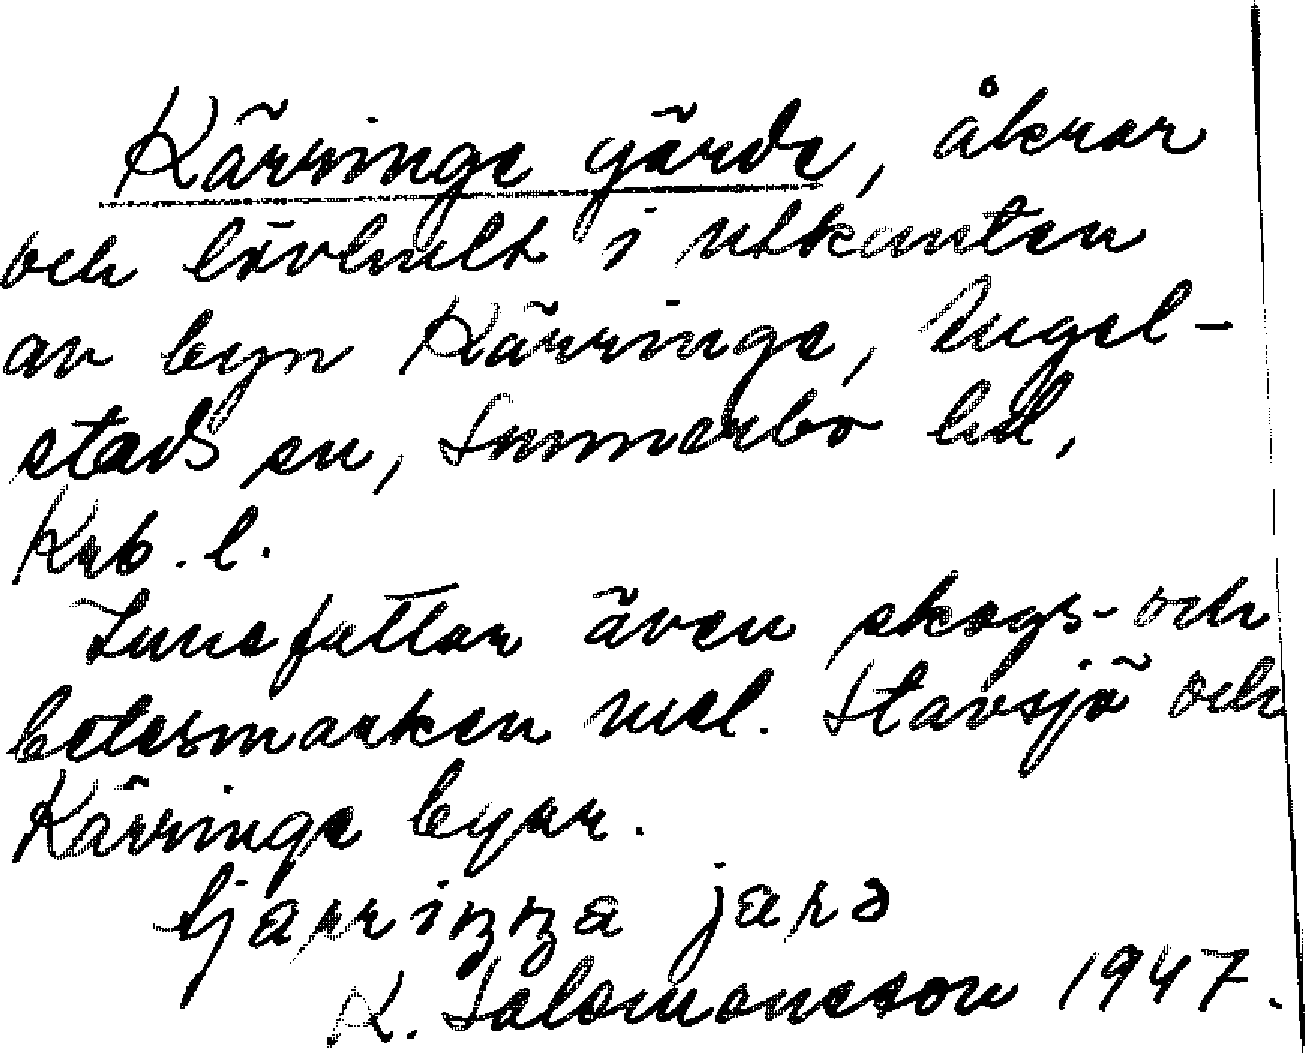 Kärringe gärde, åkrar
och lövhult i utkanten
av byn Kärringe, Angel-
stads sn, Sunnerbo hd,
Krb. l.
Innefattar även skogs- och
betesmarken mel. Stavsjö och
Kärringe byar.
tjarriŋŋa jarə
K. Salomonsson 1947.